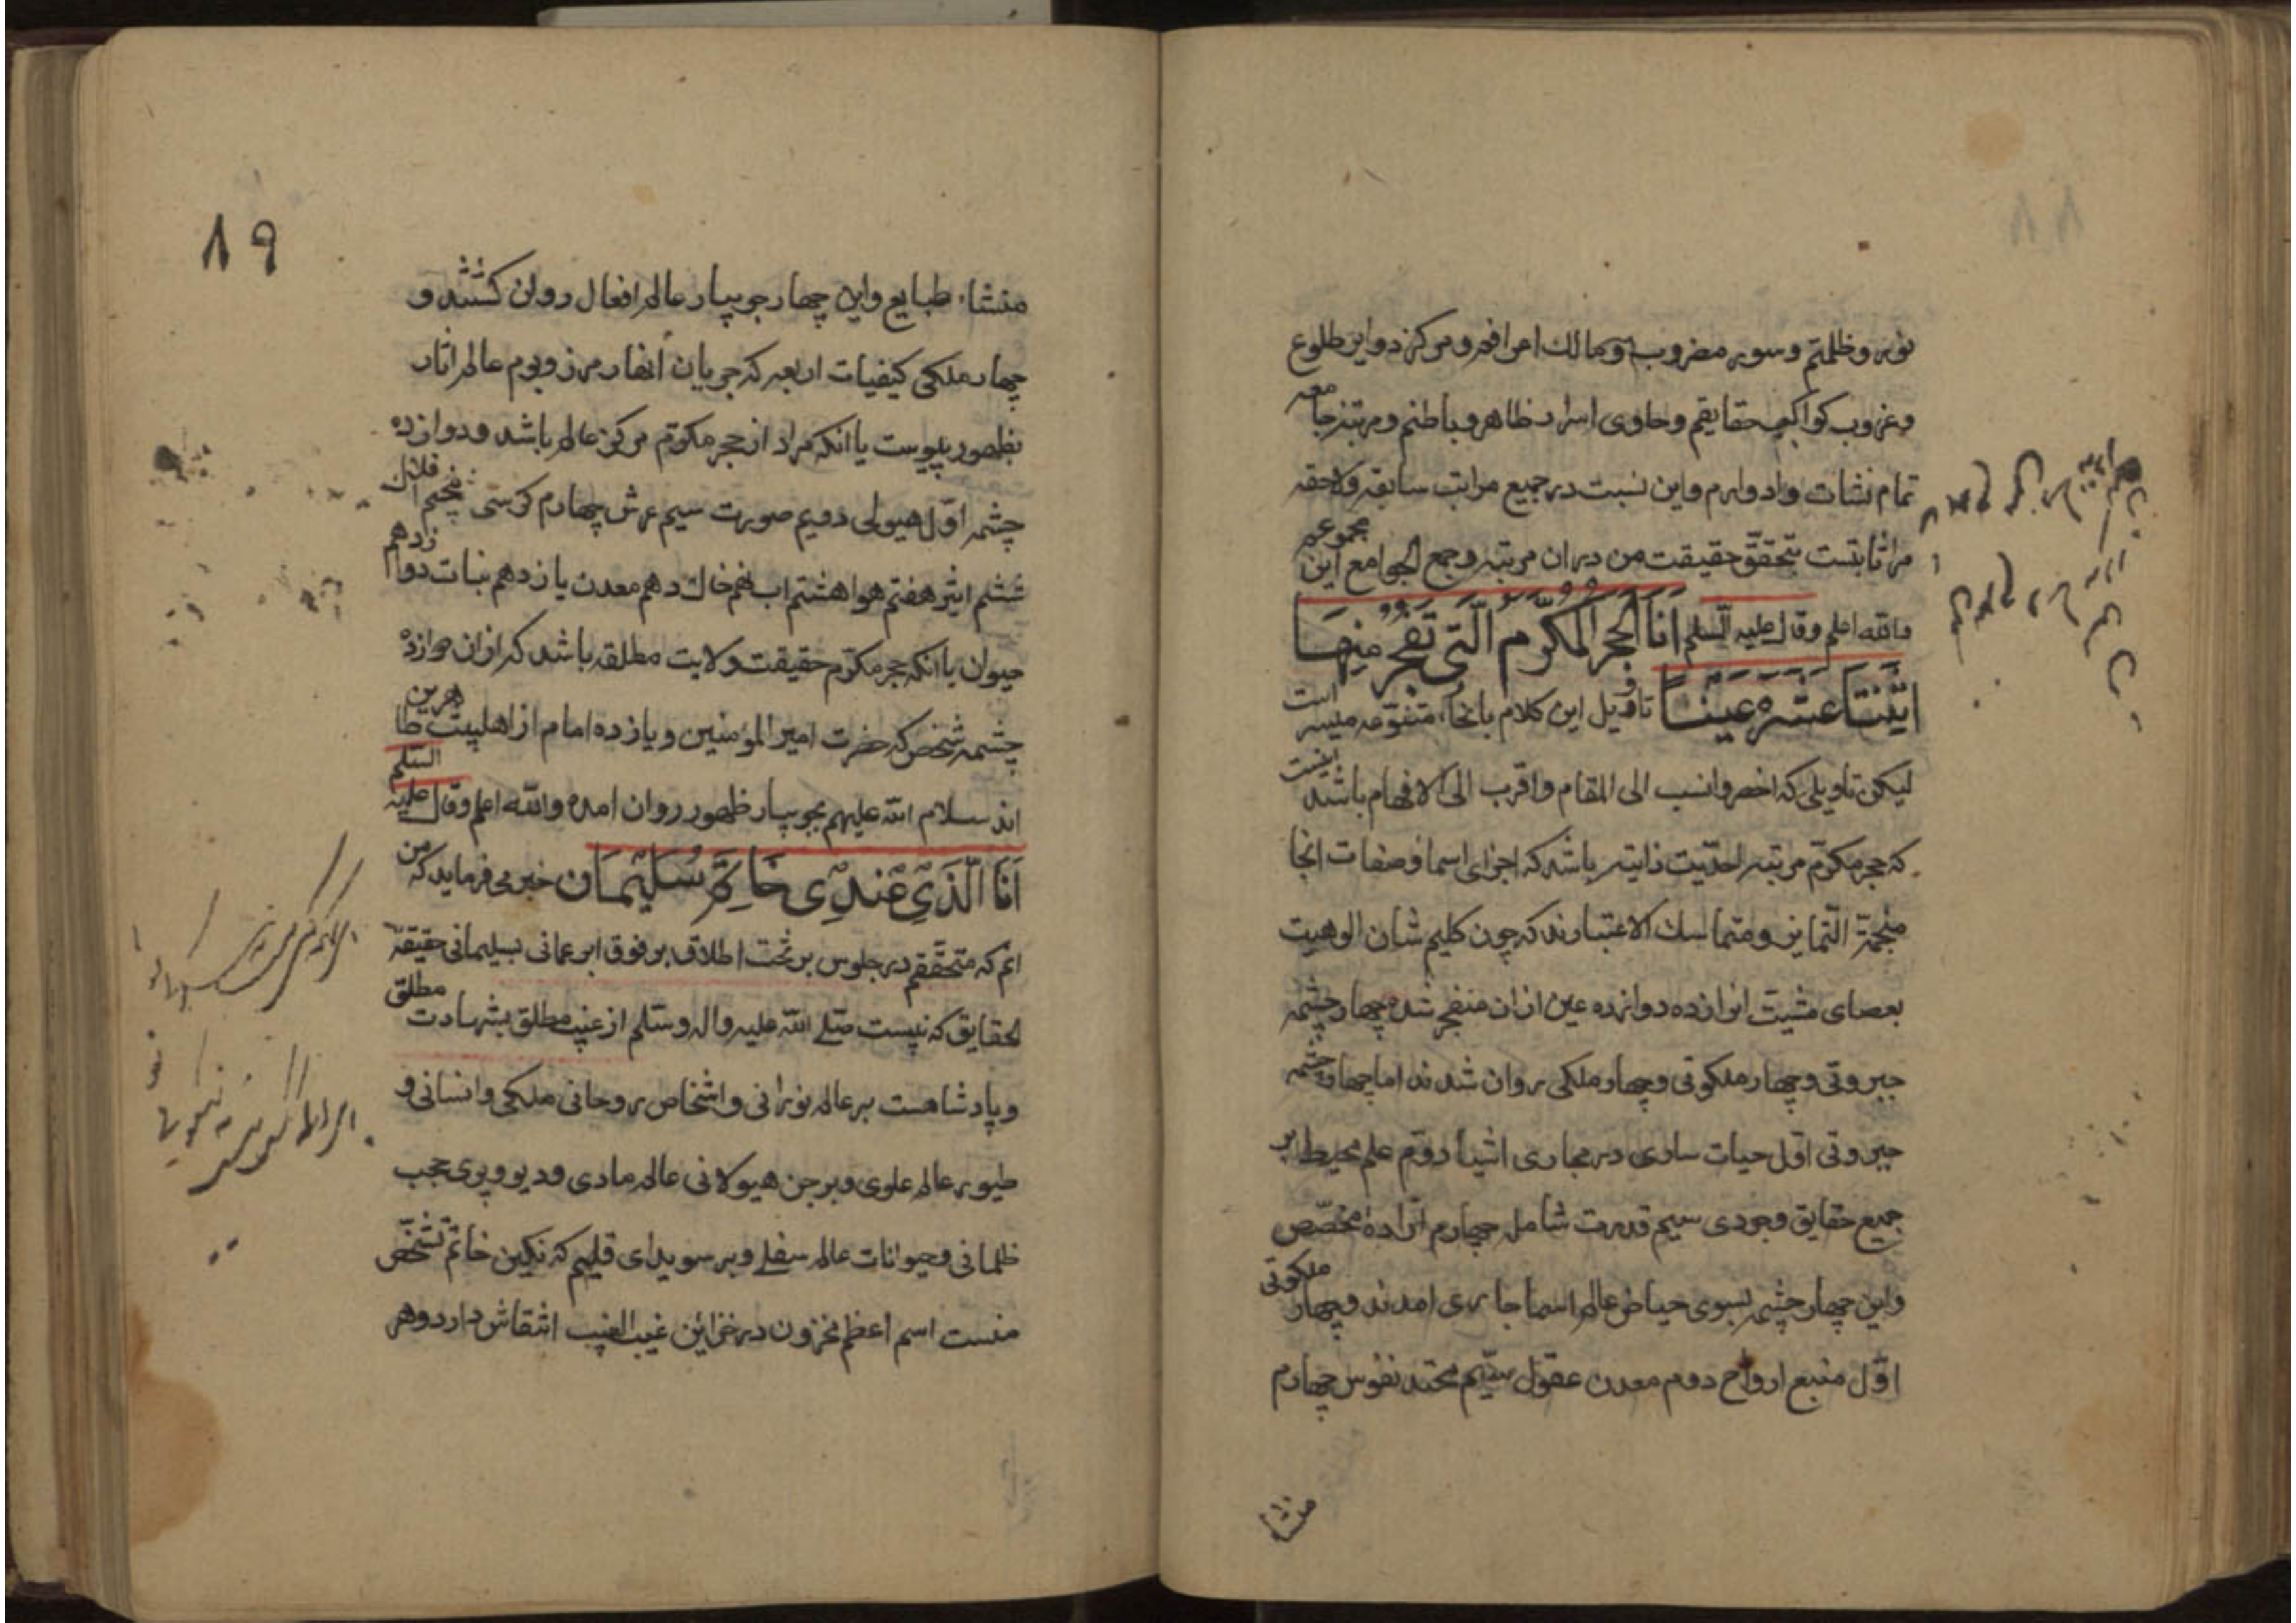 نور و ظلمتم و سور مضروب و مالک امر افق و مرکز دواير طلوع
و غروب کواکب حقايقم و حاوی اسرار ظاهر و باطنم و مرتبه جامعه
تمام نشات و ادوارم و اين نسبت در جميع مراتب سابقه و لاحقه
مرا ثابتست بتحقق حقيقت من در ان مرتبه و جمع الجوامع اين مجموعه
والله اعلم وقال عليه السلم اَنَا الحجر المُکرّم الّتی تَفَجّر مِنهَا
اثنَتا عَشَرَه عَینًا تاويل اين کلام بانحاء متنوعه ميسر است
ليکن تاويلی که اخصر و انسب الی المقام و اقرب الی الافهام باشد اینست
که حجر مکرّم مرتبه احديّت ذاتيه باشد که اجزای اسما و صفات انجا
متماسک الاعتبارند که چون کليم شان الوهيت
بعصای مشيت دوازده عين ازان منفجر شد چهار چشمه
جبروتی و چهار ملکوتی و چهار ملکی روان شدند اما چهار چشمه
جبروتی اول حيات ساری در مجاری اشيا دوم علم محيط بر
جميع حقايق وجودی سيم قدرت شامل چهارم اراده مخصّص
و اين چهار چشمه بسوی حياض عالم اسما جاری امدند و چهار ملکوتی
اوّل منبع ارواح دوم معدن عقول سيّم محتد نفوس چهارم
منشا
٨٩
منشاء طبايع و اين چهار جويبار عالم افعال روان کشتند و
چهار ملکی کيفيات اربعه که جريان انهار مرز و بوم عالم اثار
بظهور پيوست يا انکه مراد از حجر مکرّم مرکز عالم باشد و دوازده
چشمه اوّل هيولی دويم صورت سيم عرش چهارم کرسی پنجم افلاک
ششم اثير هفتم هوا هشتم اب نهم خاک دهم معدن يازدهم نبات دوازدهم
حيوان يا انکه حجر مکرّم حقيقت ولايت مطلقه باشد که ازان دوازده
چشمه شخص که حضرت امير المؤمنين و يازده امام از اهلبيت طاهرين
اند سلام الله عليهم بجويبار ظهور روان امده والله اعلم وقال عليه السلم
اَنَا الّذی عِندی خَاتَمُ سُلَیمَان خبر می فرمايد که من
انم که متحققم در جلوس بر تخت اطلاق بر فوق ابر عمائی بسليمانی حقيقة
الحقايق که نيست صلی الله عليه واله وسلم از غيب مطلق بشهادت مطلق
و پادشاهست بر عالم نورانی و اشخاص روحانی ملکی و انسانی و
طيور عالم علوی و بر جن هيولانی عالم مادی و ديو و پری حجب
ظلمانی و حيوانات عالم سفلی و بر سويدای قلبم که نکين خاتم تشخّص
منست اسم اعظم مخزون در خزائن غيب الغيب انتقاش دارد و هر